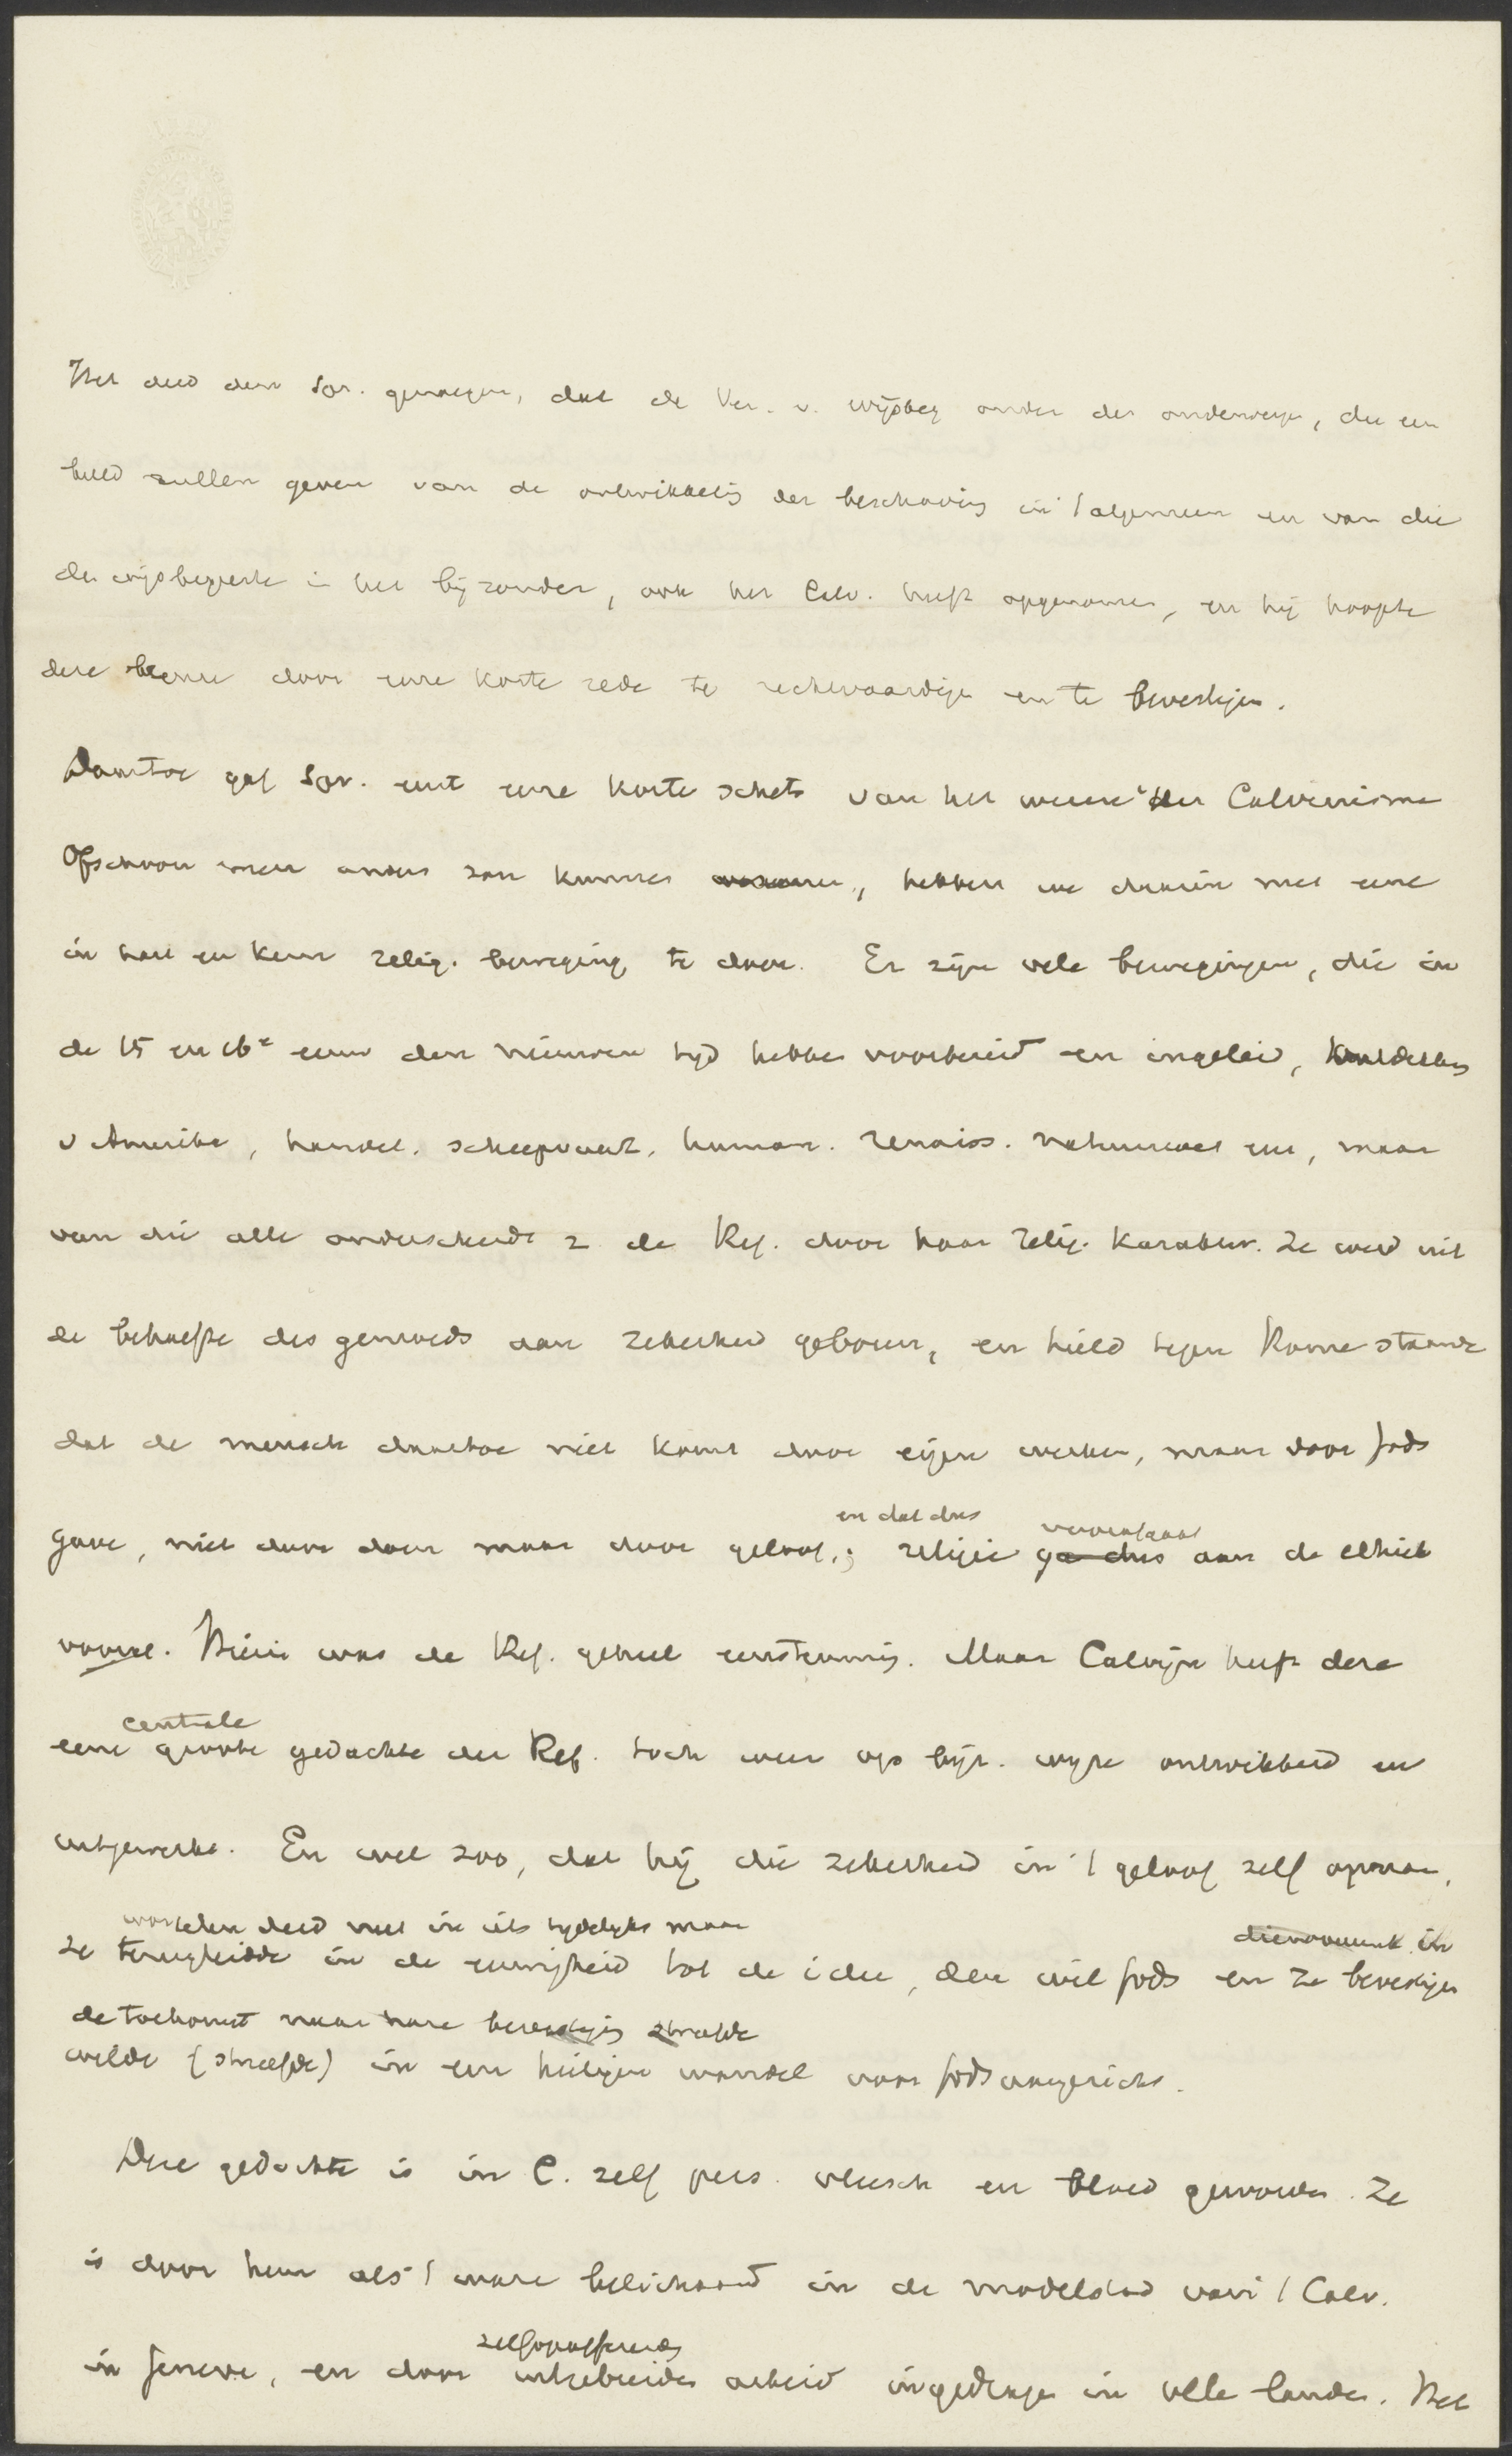 Het deed den Spr. genoegen, dat de Ver. v. wijsbeg onder de onderwerpen, die een
beeld zullen geven van de ontwikkeling der beschaving in 't algemeen en van die
der wijsbegeerte in het bijzonder, ook het Calv. heeft opgenomen, en hij hoopte
deze keuze door eene korte rede te rechtvaardigen en te bevestigen.
Daartoe gaf Spr. eerst eene korte schets van het wezen v. het Calvinisme
Ofschoon men anders zou kunnen, hebben we daarin met eene
in hart en kern relig. beweging te doen. Er zijn vele bewegingen, die in
de 15 en 16e eeuw den nieuwen tijd hebben voorbereid en ingeleid, ontdekking
v Amerika, handel, scheepvaart, human. renaiss. natuurwet enz, maar
van die alle onderscheidt z. de Ref. door haar relig. karakter. Ze werd uit
de behoefte des gemoeds aan zekerheid geboren, en hield tegen Rome staande
dat de mensch daartoe niet komt door eigen werken, maar door Gods
en dat dus
gave, niet door doen maar door geloof; religie ga dus aan de ethiek
vooraf. Hierin was de Ref. geheel eenstemmig. Maar Calvijn heeft deze
centrale
eene groote gedachte der Ref. toch weer op bijz. wijze ontwikkeld en
uitgewerkt. En wel zoo, dat hij die zekerheid in 't geloof zelf opnam,
wortelen deed niet in iets tijdelijks maar in
ze terugleidde in de eeuwigheid tot de idee, den wil Gods en ze bevestigen
de toekomst naar hare bevestiging streefde
wilde (streefde) in een heiligen wandel voor Gods aangezicht.
Deze gedachte is in C. zelf pers. vleesch en bloed geworden. Ze
is door hem als 't ware belichaamd in de modelstad van 't Calv.
zelfopofferende
in Geneve, en door uitgebreiden arbeid ingedragen in alle landen. Het